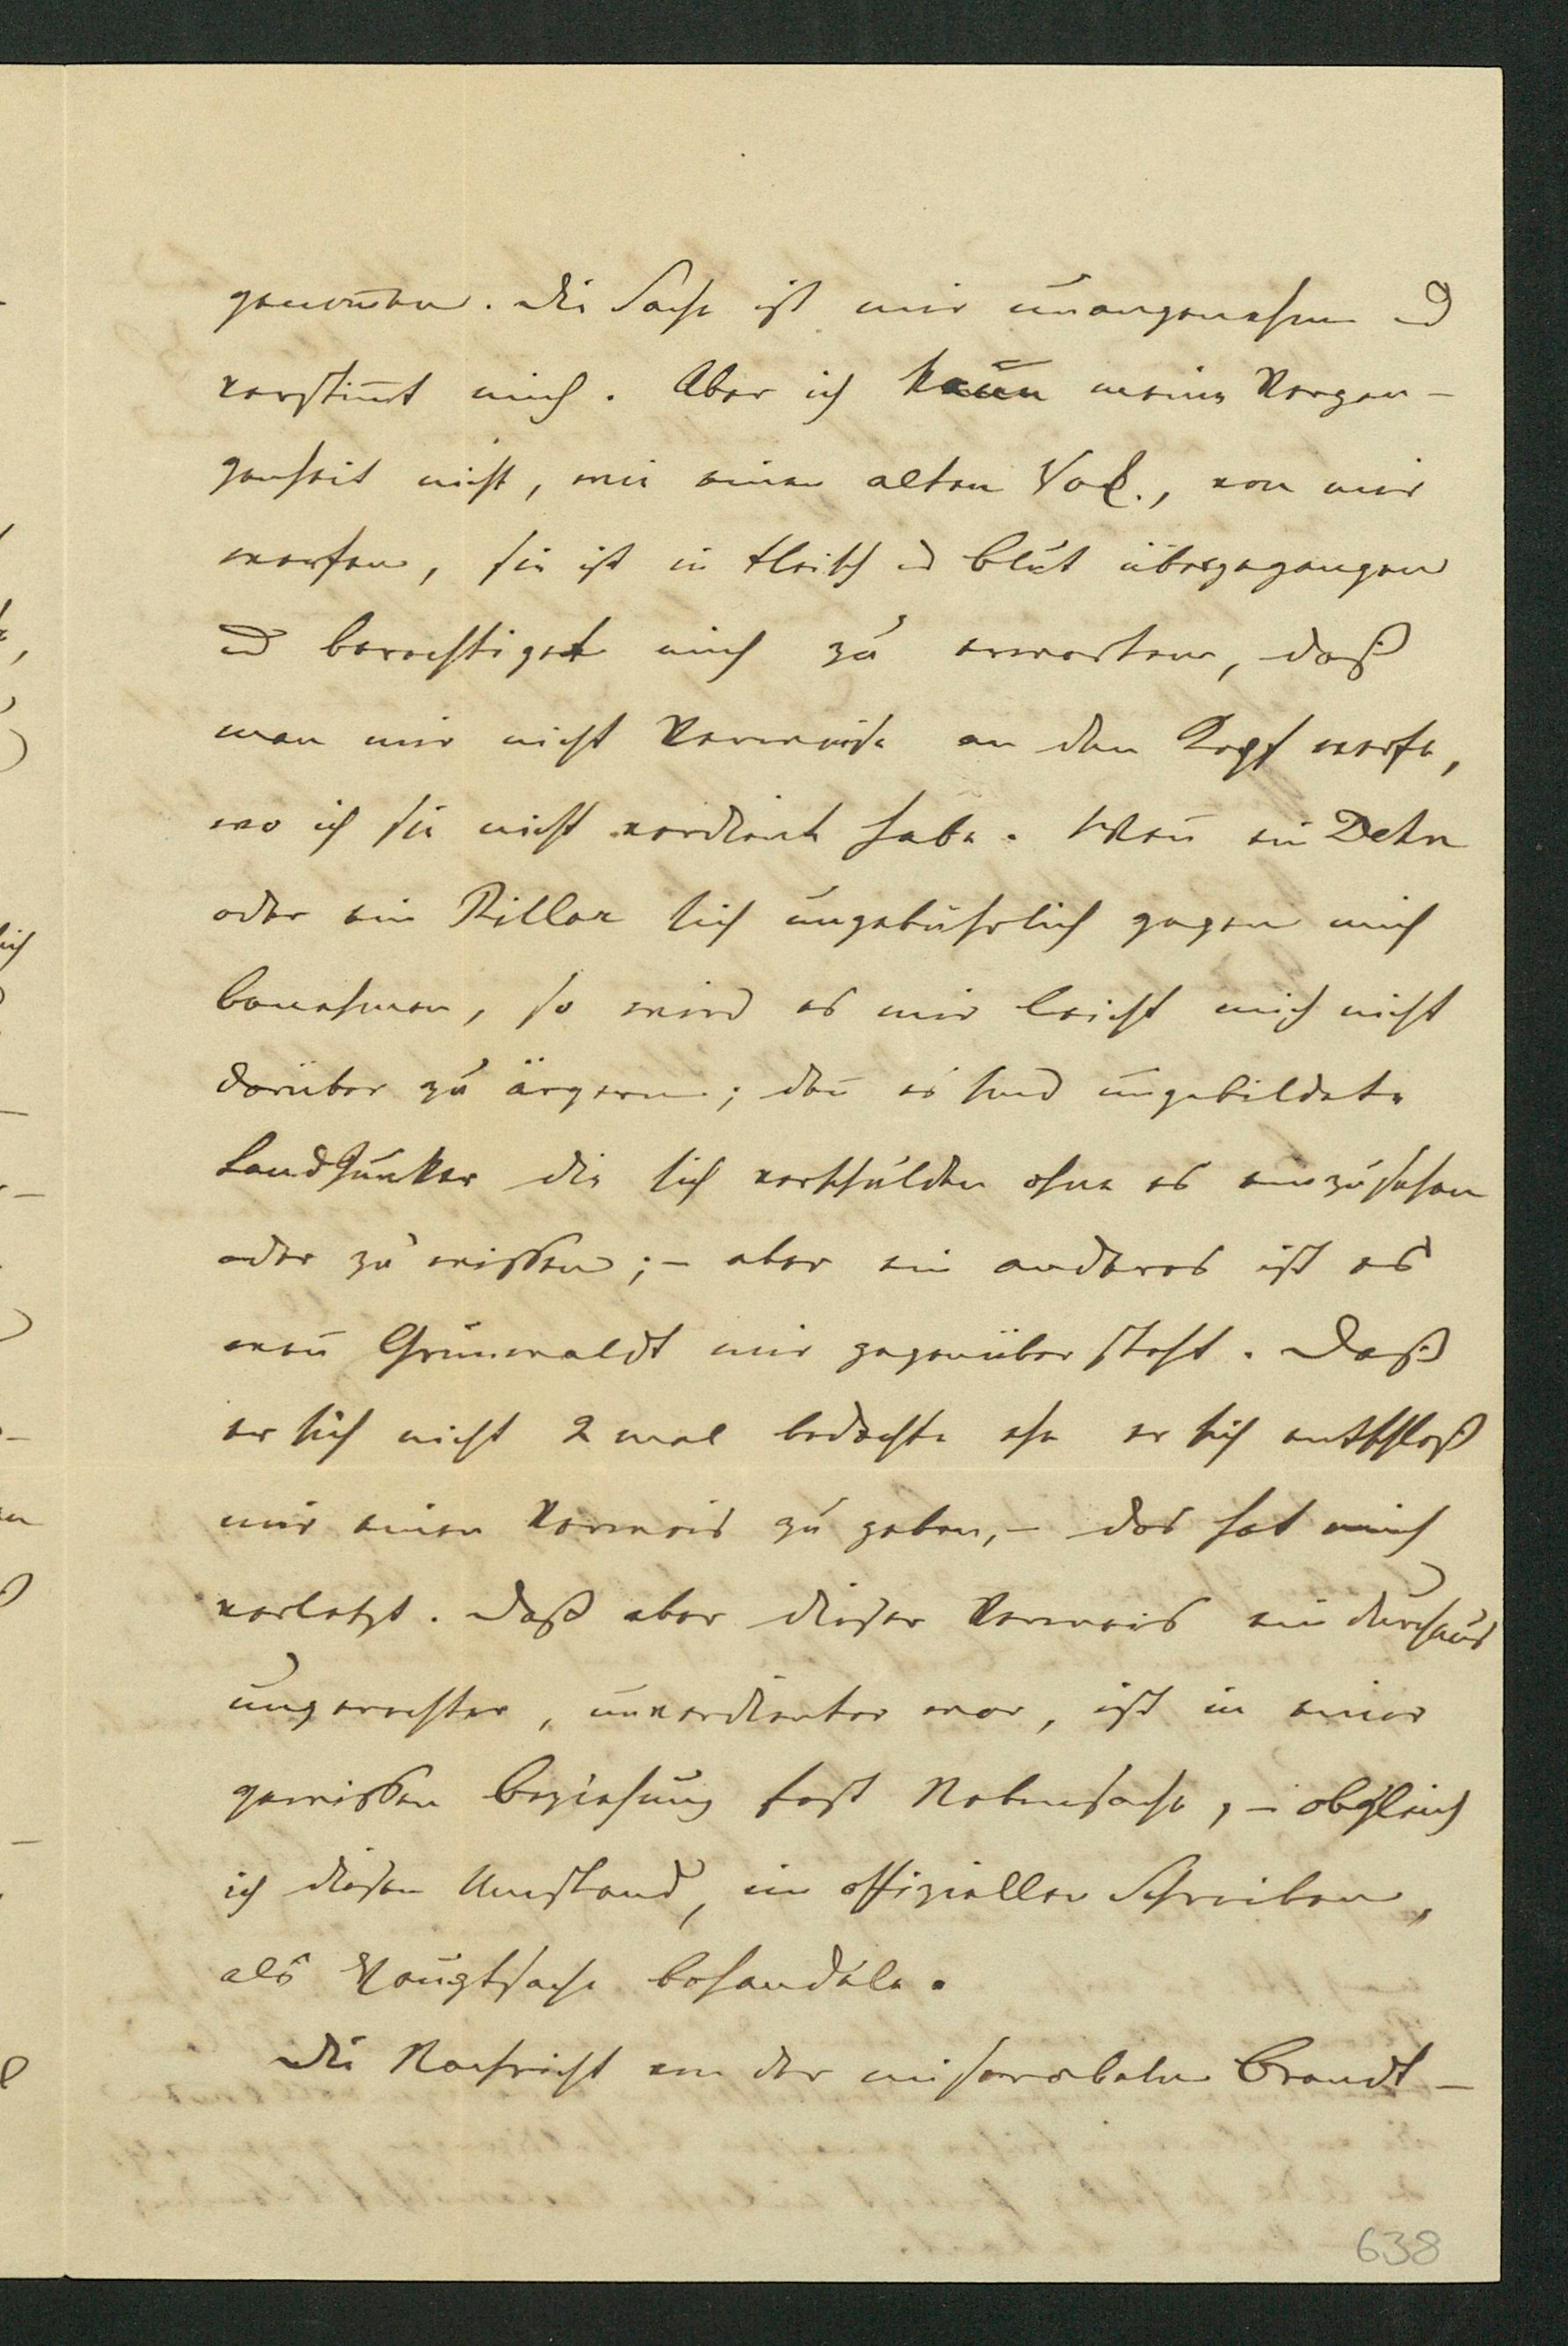 genom̅en. Die Sache ist mir unangenehm und
verstim̅t mich. Aber ich kan̅ meine Vergan-
genheit nicht, wie einen alten, von mir
werfen, sie ist in Fleisch und Blut übergegangen
und berechtiget mich zu erwarten, daß
man mir nicht Verweise an den Kopf werfe,
wo ich sie nicht verdient habe. Wen̅ ein Dehn
oder ein Pillar sich ungebührlich gegen mich
benehmen, so wird es mir leicht mich nicht
darüber zu ärgern; den̅ es sind ungebildete
Landjunker die sich verschulden ohne es einzusehen
oder zu wissen; - aber ein anderes ist es
wen̅ Grünwaldt mir gegenüber steht. Daß
er sich nicht 2 mal bedachte ehe er sich entschloß
mir einen Verweis zu geben, - das hat mich
verletzt. Daß aber dieser Verweis ein durchaus
ungerechter, unverdienter war, ist in einer
gewissen Beziehung fast Nebensache, - obgleich
ich diesen Umstand, im offiziellen Schreiben,
als Hauptsache behandele.
Die Nachricht von der miserabelen Brandt-
638